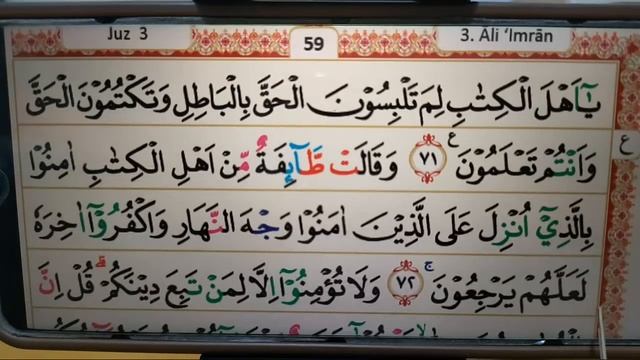 Juz 3 59 3. Āli 'Imrān
يٰٓاَهْلَ الْكِتٰبِ لِمَ تَلْبِسُوْنَ الْحَقَّ بِالْبَاطِلِ وَتَكْتُمُوْنَ الْحَقَّ
وَاَنْتُمْ تَعْلَمُوْنَ ࣖ ٧١ وَقَالَتْ طَّاۤىِٕفَةٌ مِّنْ اَهْلِ الْكِتٰبِ اٰمِنُوْا
ع
بِالَّذِيْٓ اُنْزِلَ عَلَى الَّذِيْنَ اٰمَنُوْا وَجْهَ النَّهَارِ وَاكْفُرُوْٓا اٰخِرَهٗ
لَعَلَّهُمْ يَرْجِعُوْنَ ۚ ٧٢ وَلَا تُؤْمِنُوْٓا اِلَّا لِمَنْ تَبِعَ دِيْنَكُمْ ۗ قُلْ اِنَّ